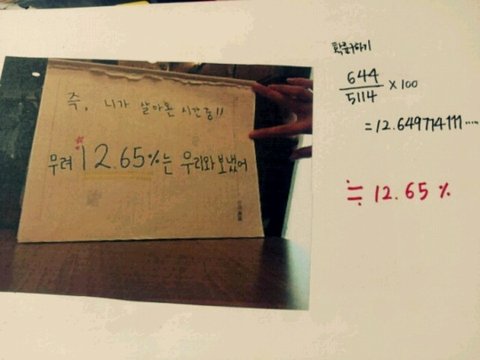 즉, 니가 살아온 시간 중!!
무려 12.65%는 우리와 보냈어
확률구하기
644
5114
×100
=12.649714111.....
≒ 12.65 %